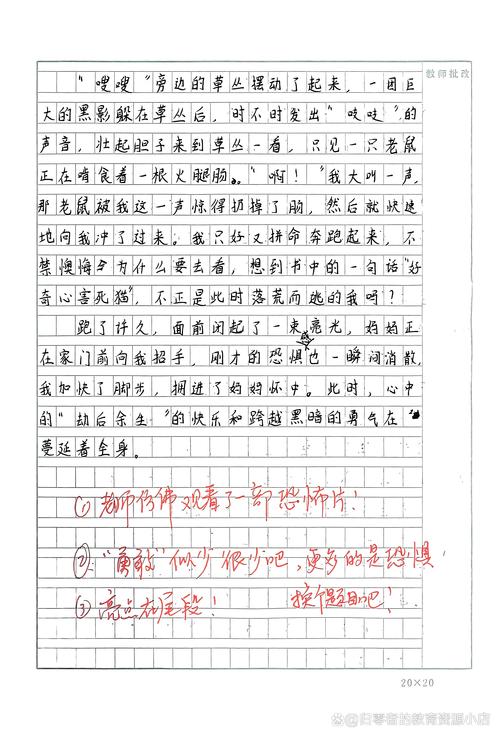 教师批改
"嗖嗖"旁边的草丛摆动了起来，一团巨
大的黑影躲在草丛后，时不时发出"吱吱"的
声音，壮起胆子来到草丛一看，只见一只老鼠
正在啃食着一根火腿肠。"啊！"我大叫一声，
那老鼠被我这一声惊得扔掉了肠，然后就快速
地向我冲了过来。我只好又拼命奔跑起来，不
禁懊悔为什么要去看，想到书中的一句话"好
奇心害死猫"，不正是此时落荒而逃的我吗？
跑了许久，面前闭起了一束亮光，妈妈正
在家门前向我招手，刚才的恐惧也一瞬间消散，
我加快了脚步，捆进了妈妈怀中。此时，心中
的"劫后余生"的快乐和跨越黑暗的勇气在
蔓延着全身。
①老师仿佛观看了一部恐怖片！
②"勇敢"似少很少吧，更多的是恐惧
③亮点在尾段！ 换个题目吧！
20×20
@归零者的教育资源小店